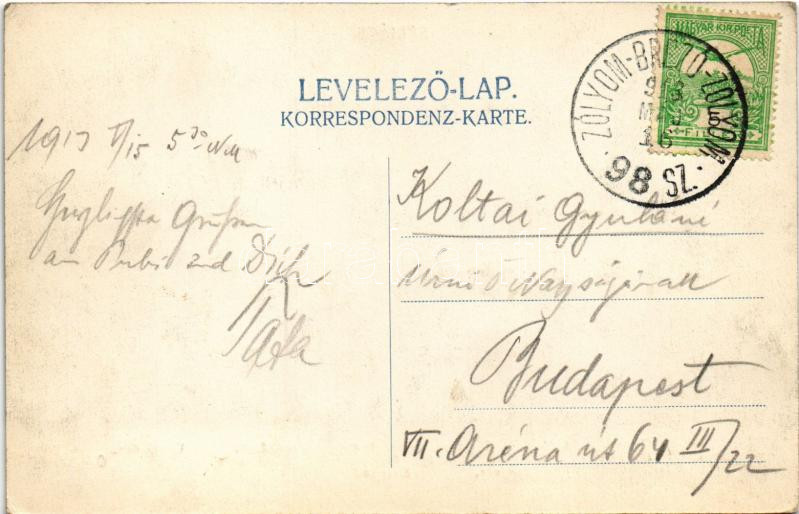 MAGYAR KIR. POSTA
ZÓLYOM-BREZÓ-ZÓLYOM
98 SZ.
LEVELEZŐ-LAP.
KORRESPONDENZ-KARTE.
1913 V/15 5³⁰ NM
Herzlichste Grüße
an Bubi und Dich
Koltai Gyuláné
Úrnő Nagyságának
Budapest
VII. Aréna út 64 III/22